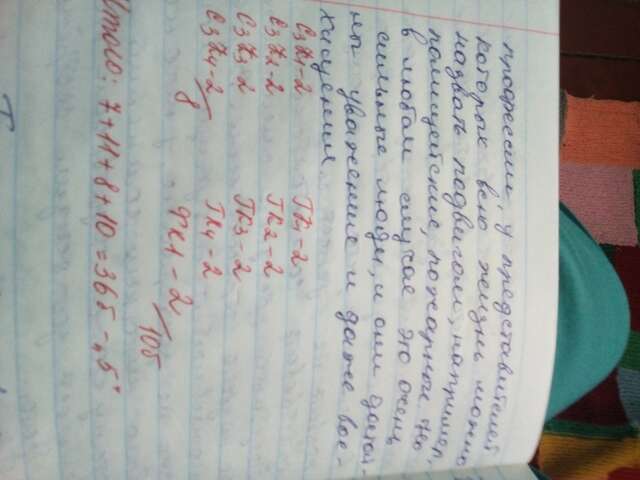 профессии, у представителей
которых всю жизнь можно
назвать подвигом, например,
полицейские, пожарные. Но
в любом случае это очень
сильные люди, и они достой-
ны уважения и даже вос-
хищения.
С3К1-2 ГК1-2
С3К2-2 ГК2-2
С3К3-2 ГК3-2
С3К4-2 ГК4-2
8
ФК1-2
10б
Итого: 7+11+8+10=36б - „5"